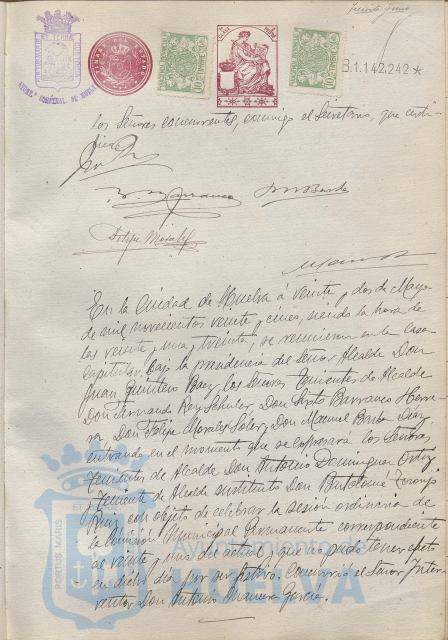 Treinta y uno
B.1.142.242 *
los Señores concurrentes, conmigo el Secretario, que certi-
fico.
Felipe Morales
En la Ciudad de Huelva á veinte y dos de Mayo
de mil novecientos veinte y cinco, siendo la hora de
las veinte y una y treinta, se reunieron en la Casa
Capitular, bajo la presidencia del Señor Alcalde Don
Juan Quintero Baez, los Señores Tenientes de Alcalde
Don Armando Rey Schuler, Don Sixto Barranco Herre-
ra, Don Felipe Morales Soler y Don Manuel Barba Diaz
entrando en el momento que se expresará los Señores
Teniente de Alcalde Don Antonio Dominguez Ortiz
y Teniente de Alcalde sustituto Don Bartolomé Toronjo
Ruiz, con objeto de celebrar la sesión ordinaria de
la Comisión Municipal Permanente correspondiente
al veinte y uno del actual y que no pudo tener efecto
en dicho dia por ser festivo. Concurrió el Señor Inter-
ventor Don Antonio Garcia.
PORTUS MARIS ET
Ayuntamiento de
HUELVA